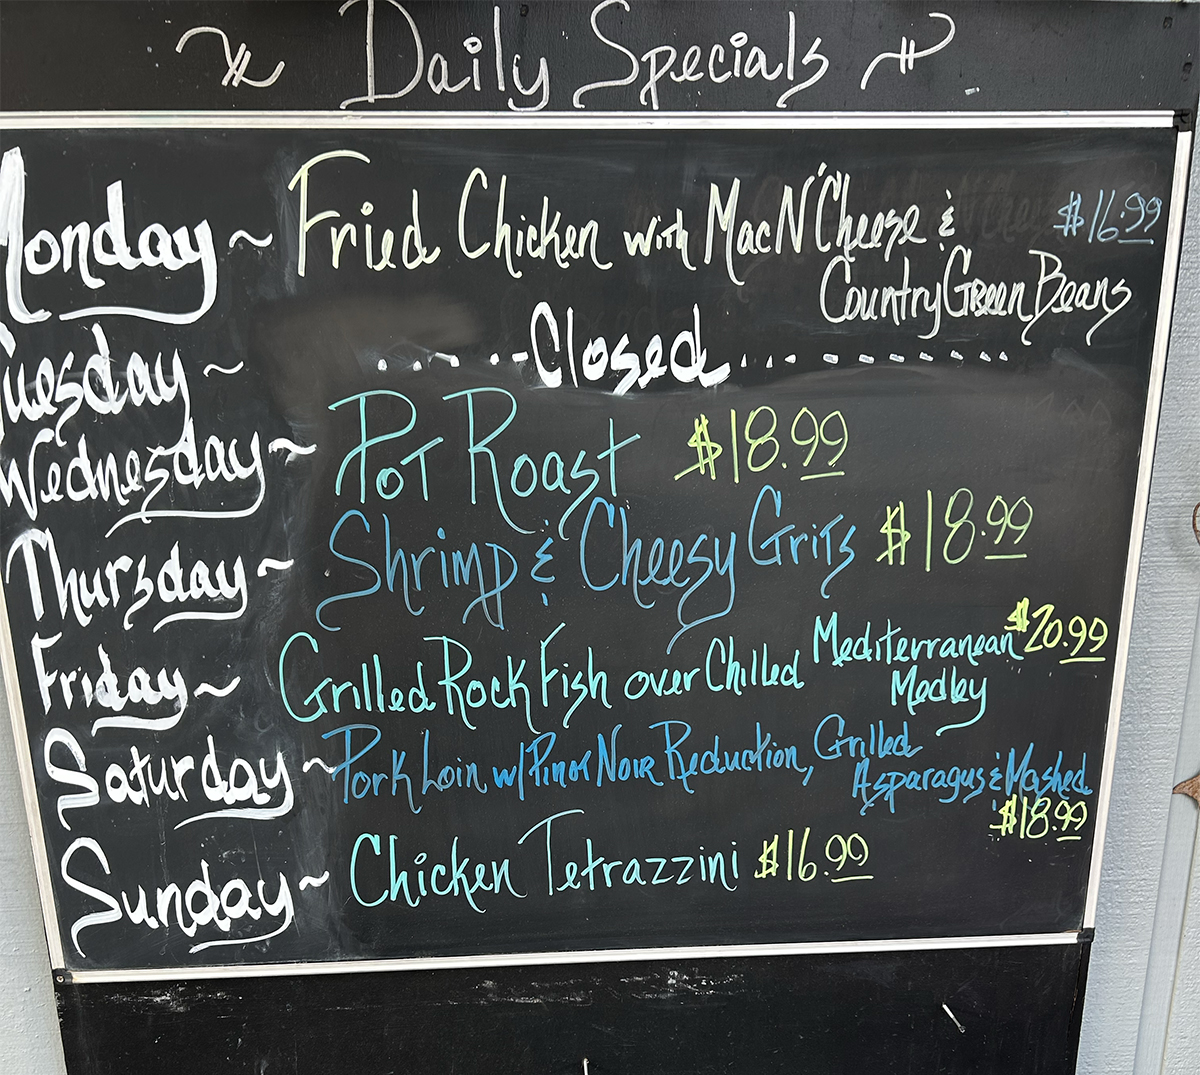 Daily Specials
Monday ~ Fried Chicken with Mac N' Cheese & $16.99
Country Green Beans
Tuesday ~ Closed
Wednesday ~ Pot Roast $18.99
Thursday ~ Shrimp & Cheesy Grits $18.99
Friday ~ Grilled Rock Fish over Chilled Mediterranean $20.99
Medley
Saturday ~ Pork Loin w/ Pinot Noir Reduction, Grilled
Asparagus & Mashed
$18.99
Sunday ~ Chicken Tetrazzini $16.99